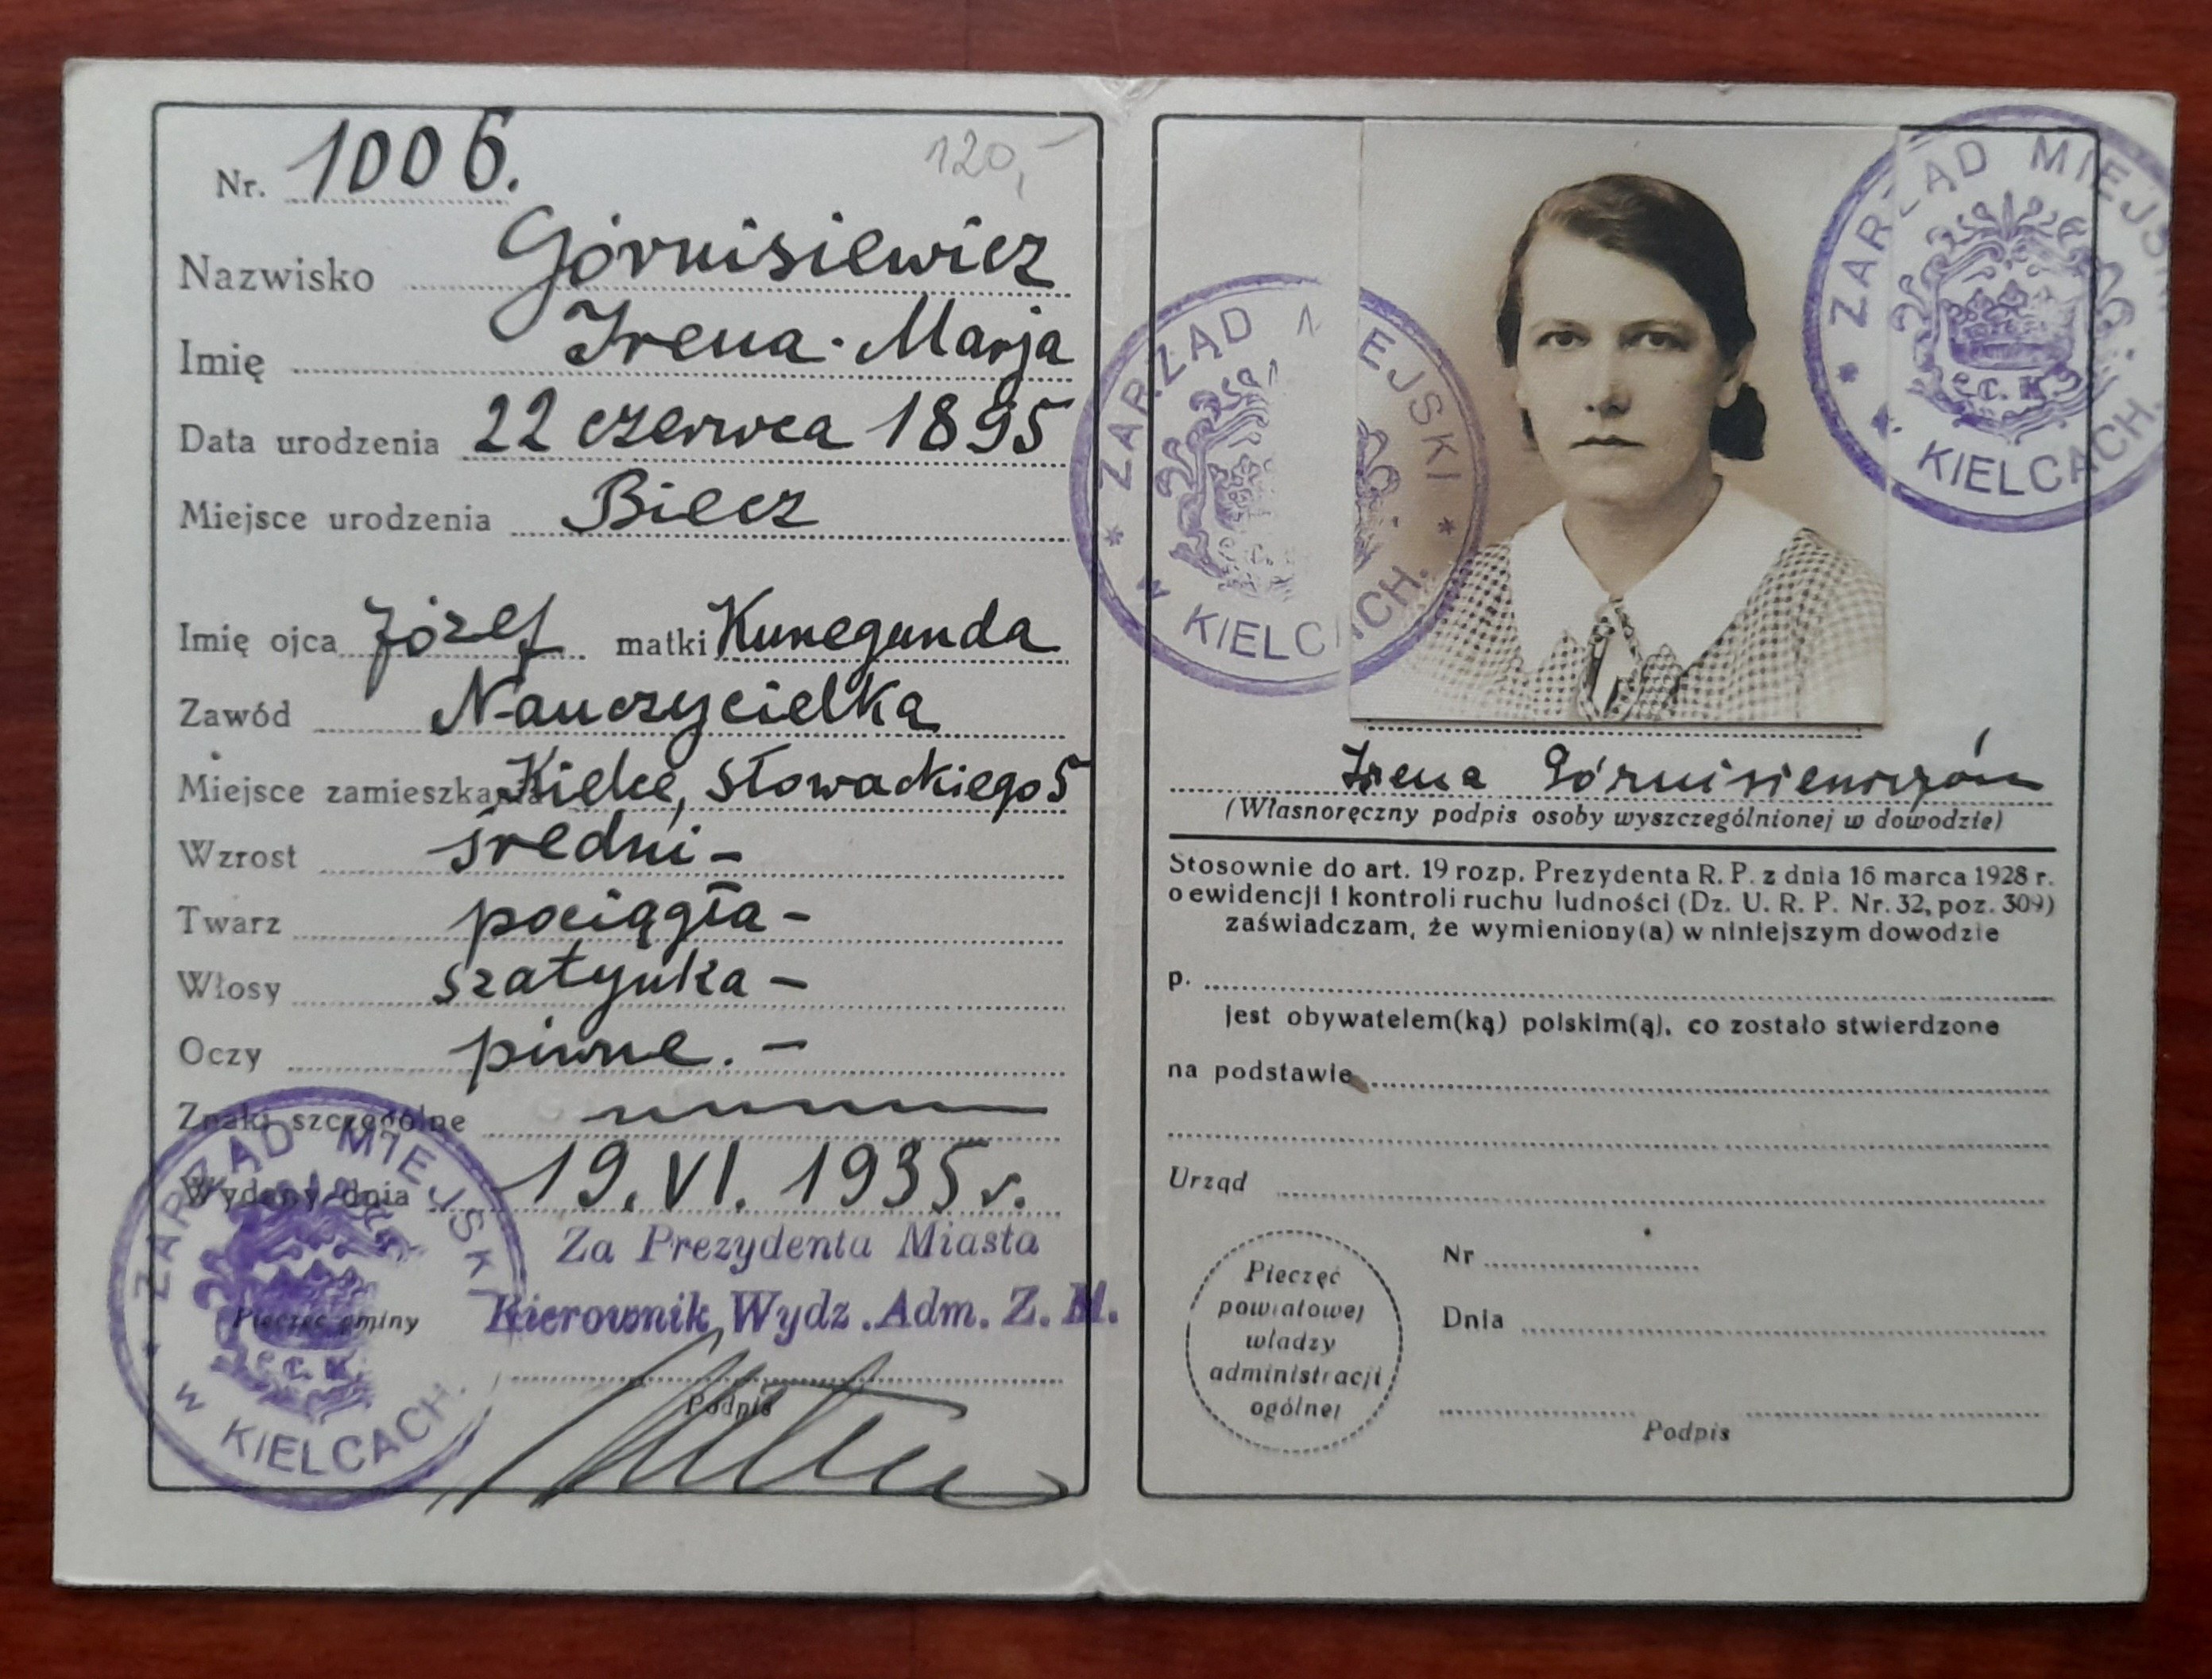 Nr. 1006.
120,-
Nazwisko Górnisiewicz
Imię Irena-Marja
Data urodzenia 22 czerwca 1895
Miejsce urodzenia Biecz
Imię ojca Józef matki Kunegunda
Zawód Nauczycielka
Miejsce zamieszkania Kielce, Słowackiego 5
Wzrost średni -
Twarz pociągła -
Włosy szatynka -
Oczy piwne. -
Znaki szczególne
Wydany dnia 19. VI. 1935 r.
Za Prezydenta Miasta
Pieczęć gminy
Kierownik Wydz. Adm. Z. M.
Podpis
* ZARZĄD MIEJSKI
w KIELCACH.
* ZARZĄD MIEJSKI *
w KIELCACH.
* ZARZĄD MIEJSKI
w KIELCACH.
Irena Górnisiewiczówn
(Własnoręczny podpis osoby wyszczególnionej w dowodzie)
Stosownie do art. 19 rozp. Prezydenta R. P. z dnia 16 marca 1928 r.
o ewidencji i kontroli ruchu ludności (Dz. U. R. P. Nr. 32, poz. 309)
zaświadczam, że wymieniony(a) w niniejszym dowodzie
p.
jest obywatelem(ką) polskim(ą), co zostało stwierdzone
na podstawie
Urząd
Pieczęć
powiatowej
władzy
administracji
ogólnej
Nr
Dnia
Podpis